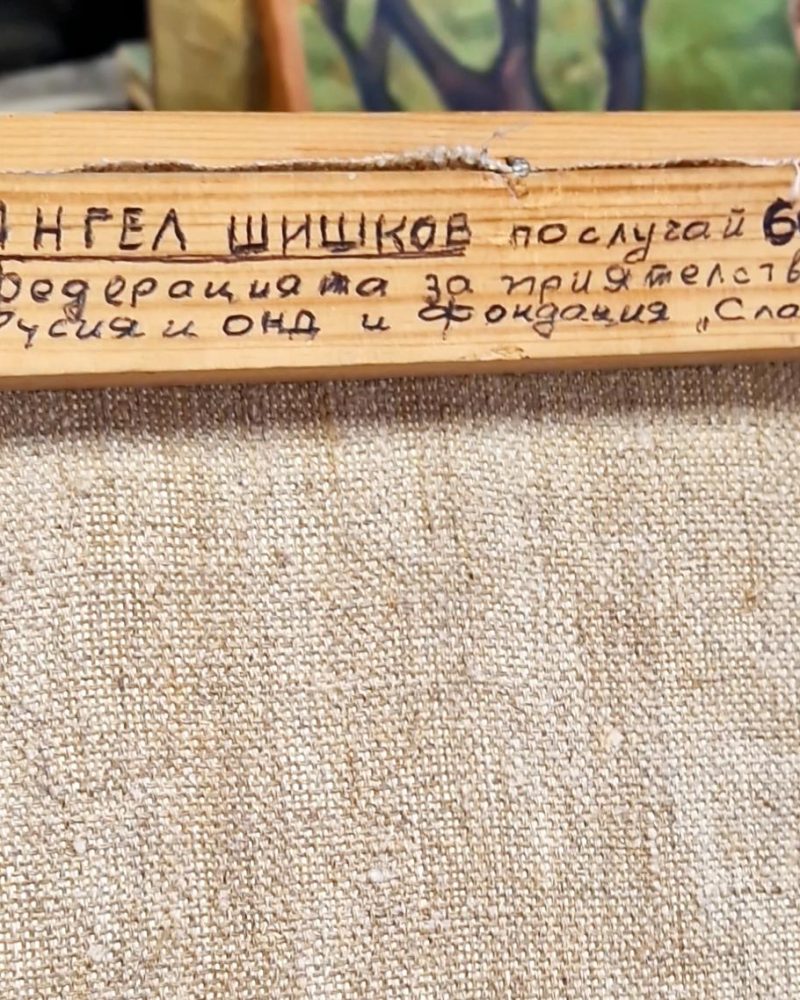 АНГЕЛ ШИШКОВ по случай 6
Федерацията за приятелств
Русия и ОНД и Фондация „Сла